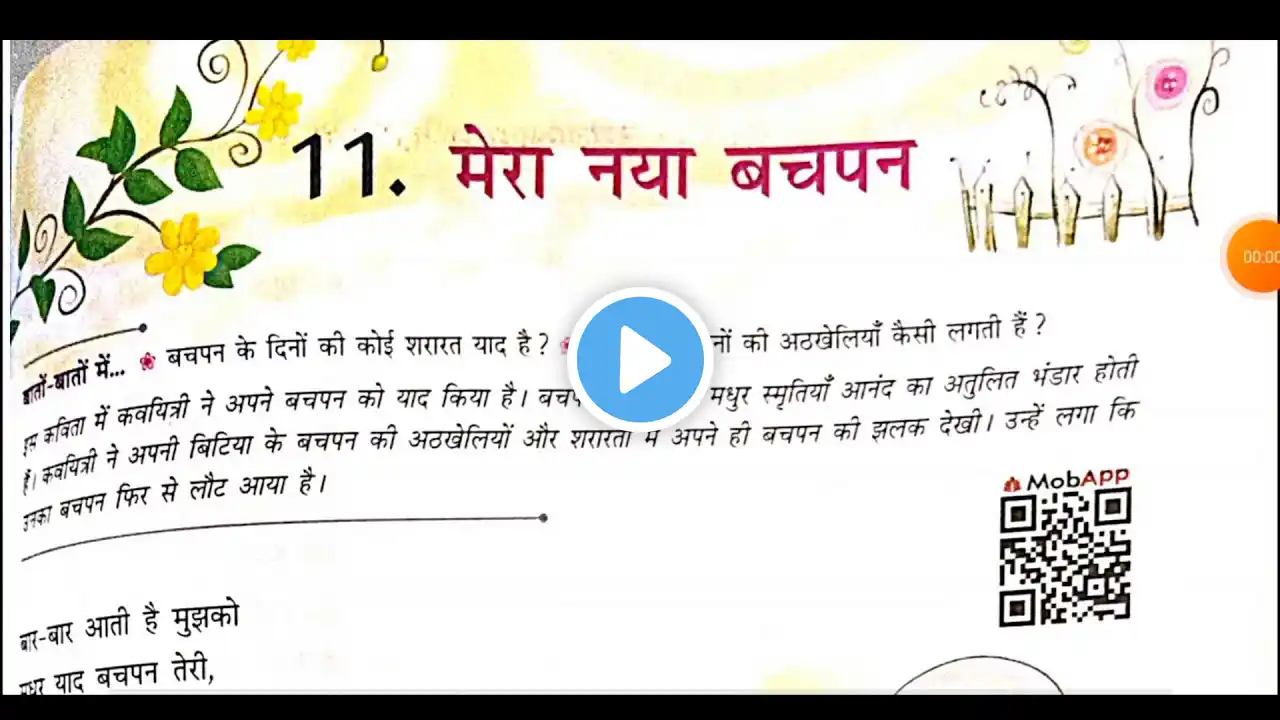 11. मेरा नया बचपन
00:00
बातों-बातों में... बचपन के दिनों की कोई शरारत याद है? नों की अठखेलियाँ कैसी लगती हैं?
इस कविता में कवयित्री ने अपने बचपन को याद किया है। बचप मधुर स्मृतियाँ आनंद का अतुलित भंडार होती
हैं। कवयित्री ने अपनी बिटिया के बचपन की अठखेलियों और शरारतों में अपने ही बचपन की झलक देखी। उन्हें लगा कि
उनका बचपन फिर से लौट आया है।
MobApp
बार-बार आती है मुझको
मधुर याद बचपन तेरी,